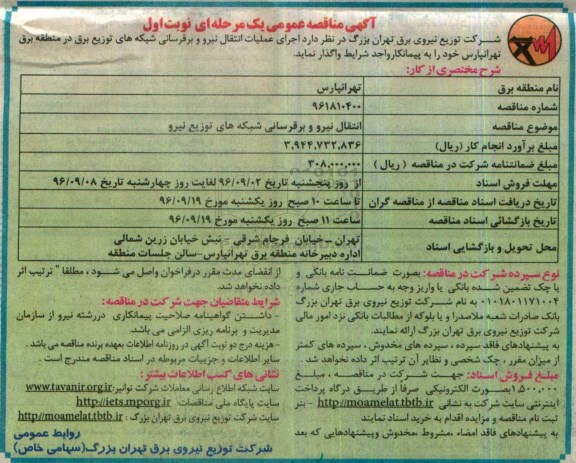 آگهی مناقصه عمومی یک مرحله ای نوبت اول
شـــرکت توزیع نیروی برق تهران بزرگ در نظر دارد اجرای عملیات انتقال نیرو و برقرسانی شبکه های توزیع برق در منطقه برق
تهرانپارس خود را به پیمانکارواجد شرایط واگذار نماید.
شرح مختصری از کار:
نام منطقه برق	تهرانپارس
شماره مناقصه	۹۶۱۸۱۰۴۰۰
موضوع مناقصه	انتقال نیرو و برقرسانی شبکه های توزیع نیرو
مبلغ برآورد انجام کار (ریال)	۳,۹۴۴,۷۳۲,۸۳۶
مبلغ ضمانتنامه شرکت در مناقصه ( ریال )	۳۰۸,۰۰۰,۰۰۰
مهلت فروش اسناد	از روز پنجشنبه تاریخ ۹۶/۰۹/۰۲ لغایت روز چهارشنبه تاریخ ۹۶/۰۹/۰۸
تاریخ دریافت اسناد مناقصه از مناقصه گران	تا ساعت ۱۰ صبح روز یکشنبه مورخ ۹۶/۰۹/۱۹
تاریخ بازگشائی اسناد مناقصه	ساعت ۱۱ صبح روز یکشنبه مورخ ۹۶/۰۹/۱۹
محل تحویل و بازگشایی اسناد	تهران – خیابان فرجام شرقی – نبش خیابان زرین شمالی
اداره دبیرخانه منطقه برق تهرانپارس-سالن جلسات منطقه
نوع سپرده شرکت در مناقصه: بصورت ضمانت نامه بانکی و
یا چک تضمین شده بانکی یا واریز وجه به حساب جاری شماره
۰۱۰۱۸۰۱۱۷۱۰۰۴ به نام شــرکت توزیع نیروی برق تهران بزرگ
بانک صادرات شعبه ملاصدرا و یا بلوکه از مطالبات بانکی نزد امور مالی
شرکت توزیع نیروی برق تهران بزرگ ارائه نمایند.
به پیشنهادهای فاقد سپرده ، سپرده های مخدوش ، سپرده های کمتر
از میزان مقرر ، چک شخصی و نظایر آن ترتیب اثر داده نخواهد شد.
مبلغ فروش اسناد: جهت شــرکت در مناقصه ، مبلغ
۱,۵۰۰,۰۰۰بصورت الکترونیکی صرفا از طریق درگاه پرداخت
اینترنتی سایت شرکت به نشانی http://moamelat.tbtb.ir - بنر
ثبت نام مناقصه و مزایده اقدام به خرید اسناد نمایند
به پیشنهادهای فاقد امضاء ،مشروط ،مخدوش وپیشنهادهایی که بعد
از انقضای مدت مقرر درفراخوان واصل می شــود ، مطلقا " ترتیب اثر
داده نخواهد شد.
شرایط متقاضیان جهت شرکت در مناقصه:
- داشــتن گواهینامه صلاحیت پیمانکاری دررشته نیرو از سازمان
مدیریت و برنامه ریزی الزامی می باشد.
- هزینه درج دو نوبت آگهی در روزنامه اطلاعات بعهده برنده مناقصه می باشد .
سایر اطلاعات و جزییات مربوطه در اسناد مناقصه مندرج است .
نشانی های کسب اطلاعات بیشتر :
سایت شبکه اطلاع رسانی معاملات شرکت توانیر:www.tavanir.org.ir
سایت پایگاه ملی مناقصات: http://iets.mporg.ir
سایت شرکت توزیع نیروی برق تهران بزرگ : http://moamelat.tbtb.ir
روابط عمومی
شرکت توزیع نیروی برق تهران بزرگ(سهامی خاص)